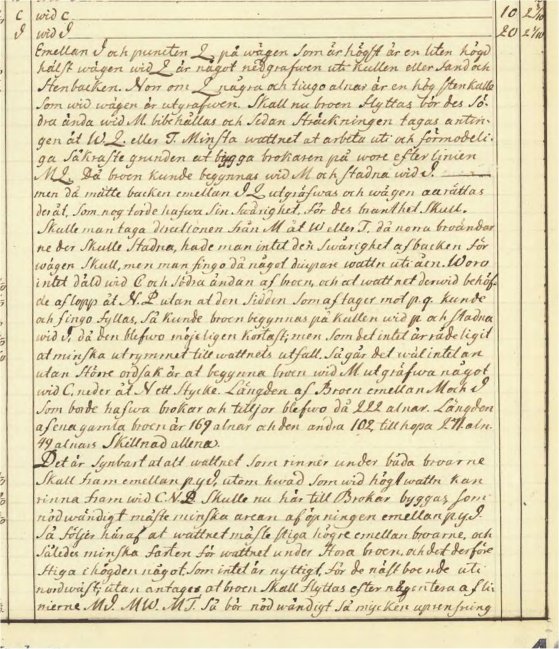 C wid C. 10 2 1/10
I wid I 20 2 1/10
Emellan I och puncten L på wägen som är högst är en liten högd
hälst wägen wid L är något nedgrafwen uti kullen eller sand och
Stenbacken. Norr om L några och tiugo alnar är en hög stenkulle
som wid wägen är utgrafwen. Skall nu broen flyttas bör des Sö-
dra ända wid M bibehållas och Sedan Sträckningen tagas antin-
gen åt W L eller T. Minsta wattnet at arbeta uti och förmodeli-
ga Säkraste grunden at bygga brokaren på wore efter linien
M I. Då broen kunde begynnas wid M och stadna wid I.
men då måtte backen emellan I L utgräfwas och wägen aarättas
deråt, som nog torde hafwa sin Swårighet, för des branthet Skull.
Skulle man taga directionen från M åt W eller T. då norra broändar
ne der Skulle Stadna, hade man intet den Swårighet af backen för
wägen Skull, men man fingo då något diupare wattn uti åen. Woro
intet däld wid C och Södra ändan af broen, och at wattnet derwid behöf-
de aflopp åt N. P utan at den Sidden Som aftager mot p. q. kunde
och fingo fyllas, Så kunde broen begynnas på kullen wid p. och stadna
wid I, då den blefwo möjeligen kortast; men som det intet är rådeligit
at minska utrymmet till wattnets utfall, Så går det wäl intet an
utan Större ordsak är at begynna broen wid M utgräfwa något
wid C, neder åt N ett Stycke. Längden af Broen emellan M och I
Som borde hafwa brokar och tilljor blefwo då 222 alnar. Längden
af ena gamla broen är 169 alnar och den andra 102, till hopa 271 aln.
49 alnars Skillnad allena.
Det är Synbart at alt wattnet som rinner under båda broarne
Skall fram emellan p. y I, utom hwad som wid högt wattn kan
rinna fram wid C. N. P. Skulle nu här till Brokar byggas som
nödwändigt måste minska arean af öpningen emellan p. y I
Så följer häraf at wattnet måste stiga högre emellan broarne, och
således minska farten för wattnet under Stora broen, och det derföre
Stiga i högden något, som intet är nyttigt, för de näst boende uti
nordwäst; utan antages at broen Skall flyttas efter någontera af li-
nierne M I. M W. M T. Så bör nödwändigt Så mycken uprensning